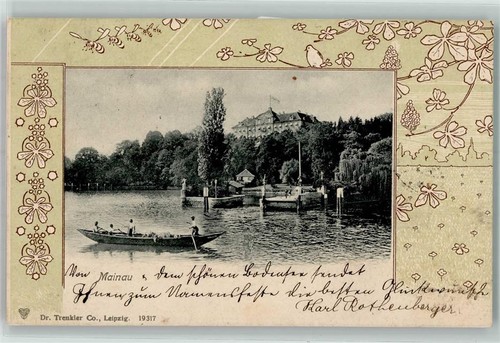 Von Mainau a. dem schönen Bodensee sendet
Ihnen zum Namensfeste die besten Glückwünsche
Karl Rothenberger.
Dr. Trenkler Co., Leipzig. 19317